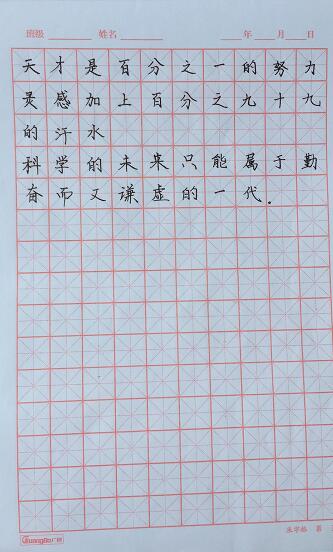 班级 姓名 年 月 日
天才是百分之一的努力
灵感加上百分之九十九
的汗水
科学的未来只能属于勤
奋而又谦虚的一代.
GuangBo广博